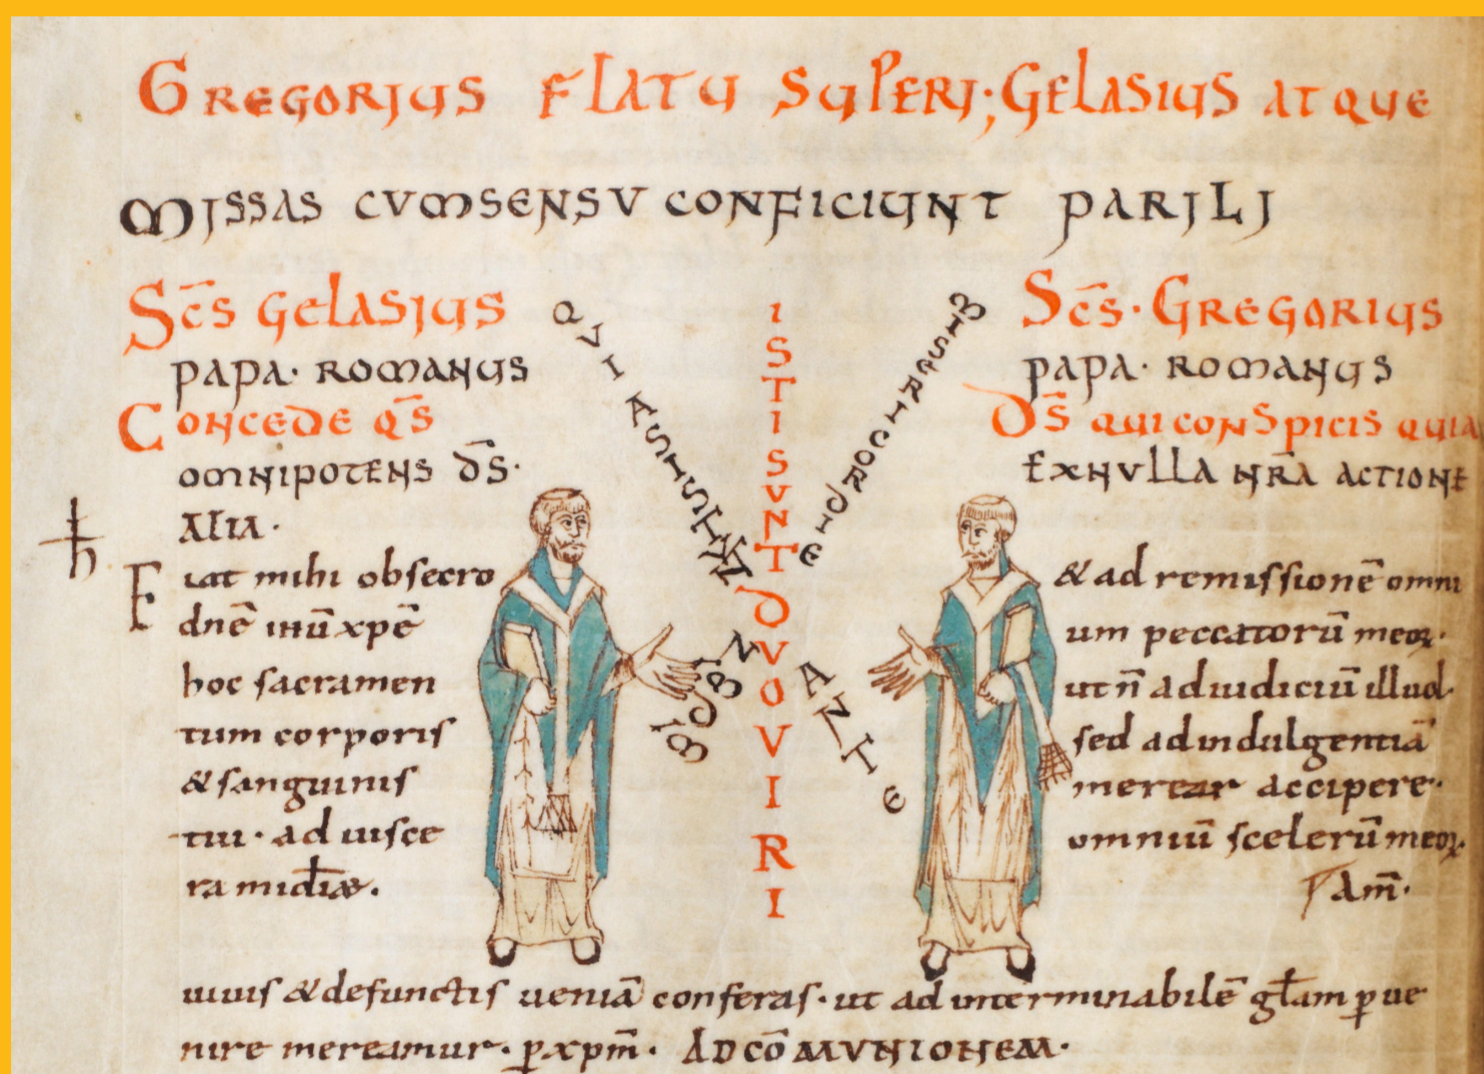 GREGORIUS FLATU SUPERI; GELASIUS ATQUE
MISSAS CVM SENSV CONFICIUNT PARILI
SC̄S GELASIUS
PAPA· ROMANUS
CONCEDE Q̄S
OMNIPOTENS D̄S·
ALIA·
Fiat mihi obsecro
dnē xpē
hoc sacramen
tum corporis
& sanguinis
tui· ad uisce
QVIA SIS
ANTE
ISTI SVNT DVO VIRI
MISERICORDIE
SC̄S· GREGORIUS
PAPA· ROMANUS
D̄S QUI CONSPICIS QUIA
EX NVLLA NR̄A ACTIONE
& ad remissionē omni
um peccatorū meoꝝ·
ut n̄ ad iudiciū illud·
sed ad indulgentiā
merear accipere·
omniū scelerū meoꝝ·
Am̄·
uiuis & defunctis ueniā conferas· ut ad interminabilē głam ꝑue
nire mereamur· ꝑ xpm̄· AD CŌMVNIONEM·